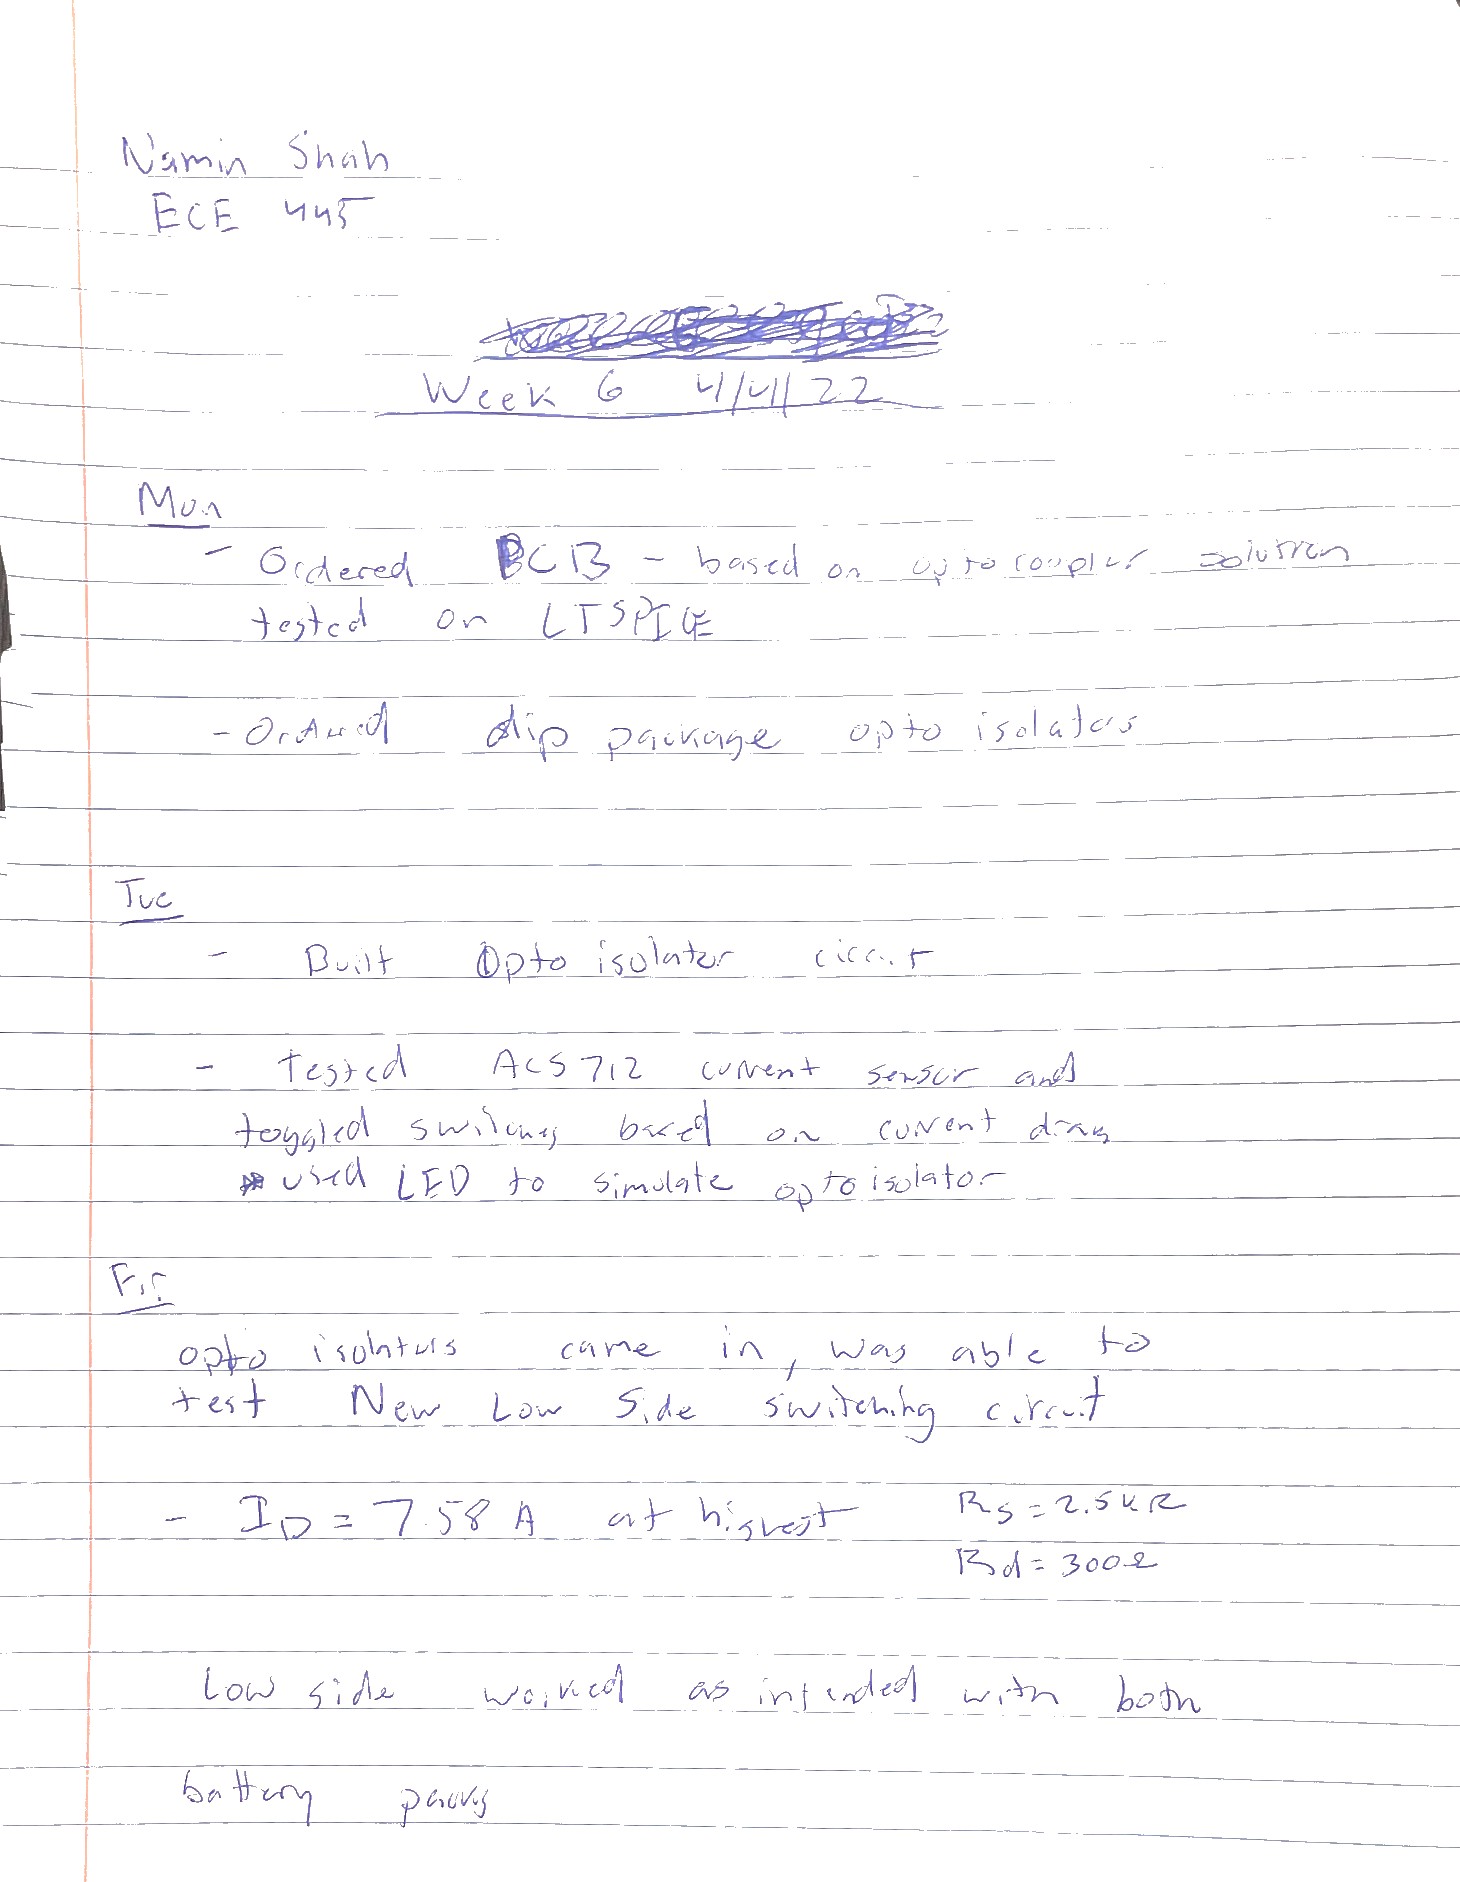 Namin Shah
ECE 445
Week 6 4/4/22
Mon
- Ordered PCB - based on optocoupler solution
tested on LTSPICE
- Ordered dip package opto isolators
Tue
- Built Opto isolator circuit
- Tested ACS712 current sensor and
toggled switches based on current draw
* used LED to simulate optoisolator
Fri
opto isolators came in, was able to
test New Low Side switching circuit
- ID = 7.58 A at highest Rs = 2.5kΩ
Rd = 300Ω
Low side worked as intended with both
battery packs